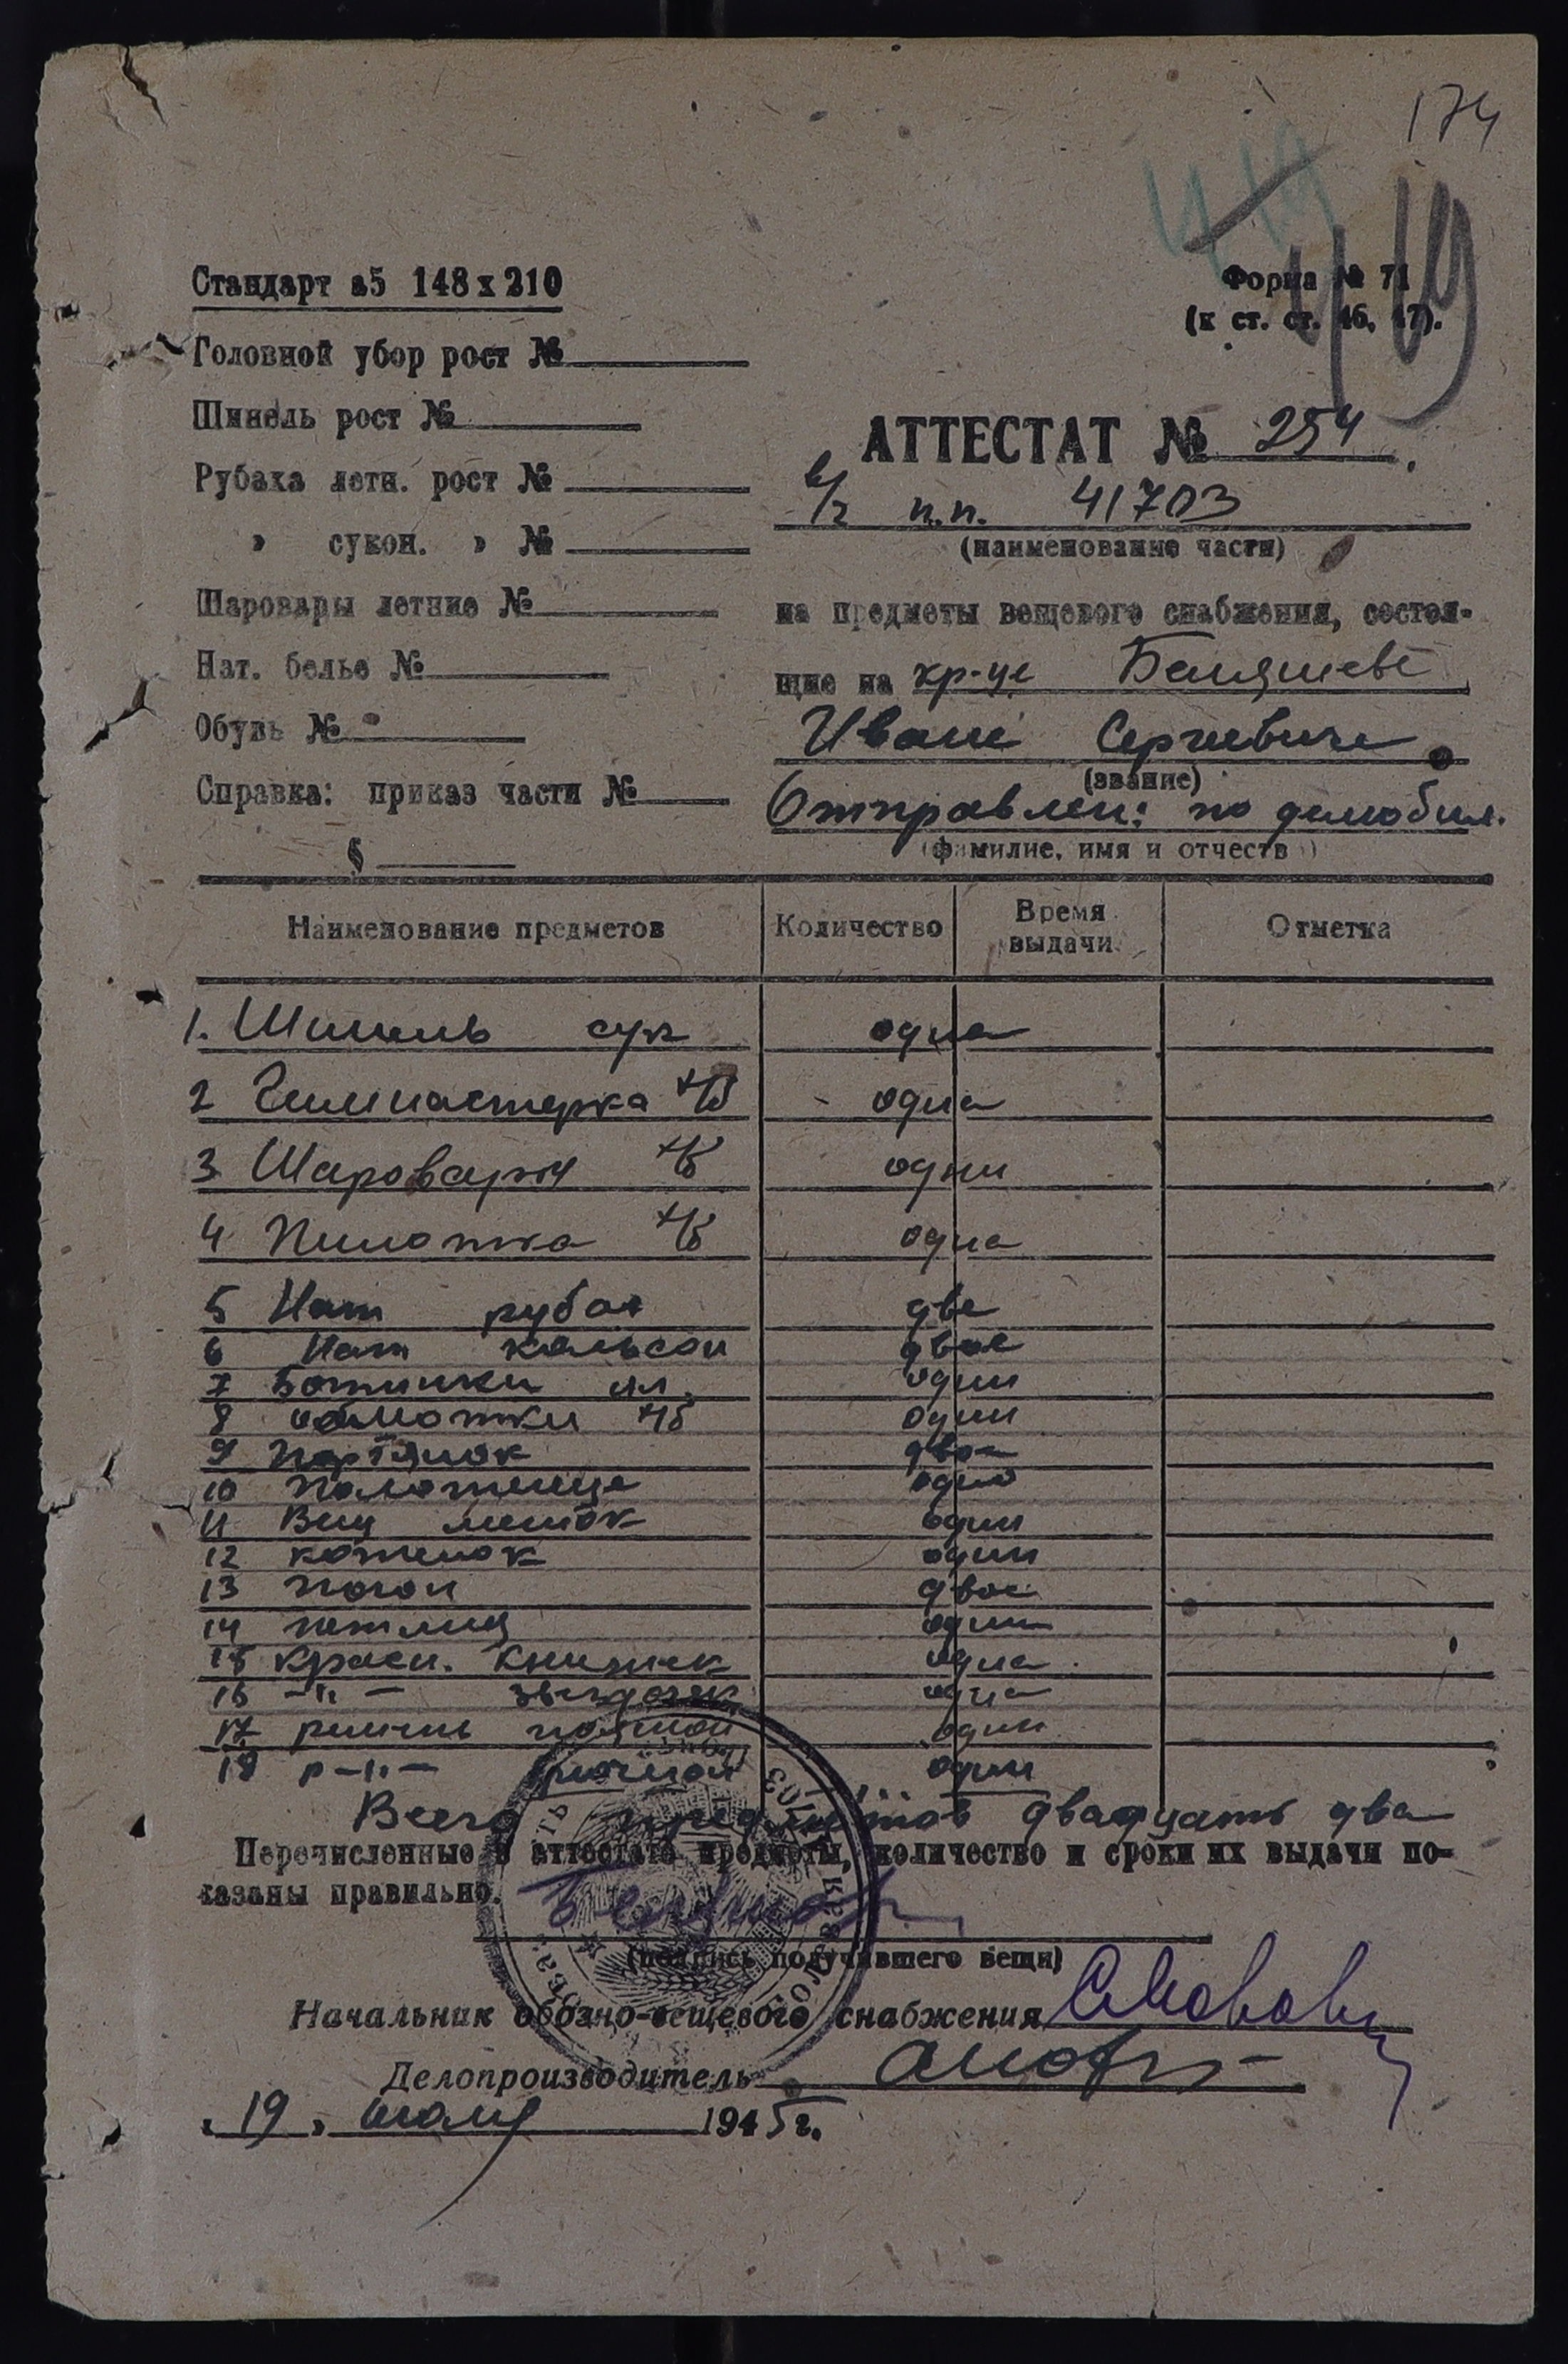 174
419
419
Стандарт а5 148х210
Форма № 71
(к ст. ст. 46, 47).
Головной убор рост №
Шинель рост №
АТТЕСТАТ № 254.
Рубаха летн. рост №
в/ч п.п. 41703
» сукон. » №
(наименование части)
Шаровары летние №
на предметы вещевого снабжения, состоя-
Нат. белье №
щие на кр-це Беляшеве
Обувь №
Иване Сергеевиче
(звание)
Справка: приказ части №
Отправлен: по демобил.
§
(фамилие, имя и отчеств )
Наименование предметов Количество Время выдачи Отметка
1. Шинель сук одна
2 Гимнастерка х/б одна
3 Шаровары х/б одни
4 Пилотка х/б одна
5 Нат рубах две
6 Нат кальсон двое
7 Ботинки ял. одни
8 обмотки х/б одни
9 Портянок двое
10 Полотенце одно
11 Вещ мешок один
12 котелок один
13 Погон двое
14 петлиц одни
15 Красн. книжек одна
16 –"– звездочек одна
17 ремень поясной один
18 р–"– брючной один
Всего предметов двадцать два
Перечисленные в аттестате предметы, количество и сроки их выдачи по-
казаны правильно.
(подпись получившего вещи)
Начальник обозно-вещевого снабжения
Делопроизводитель
„19„ июля 1945 г.